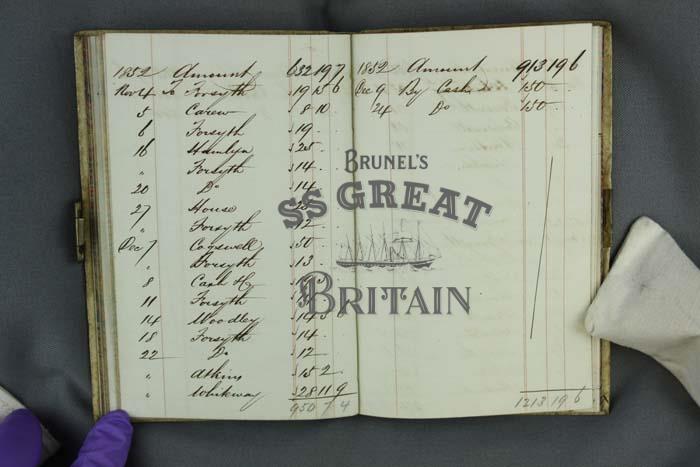 1852 Amount 632 19 7
Nov 4 To Forsyth 19 15 6
5 Carew 8 10
6 Forsyth 19
16 Hamlyn 25
" Forsyth 14
20 Do 14
27 House
" Forsyth 12
Dec 7 Cogswell 50
" Forsyth 13
8 Cash
11 Forsyth
14 Woodley 14
18 Forsyth 14
22 Do 12
" Atkins 15 2
" Whiteway 28 11 9
950 7 4
1852 Amount 913 19 6
Dec 9 By Cash 150
24 Do 150
1213 19 6
BRUNEL'S
SS GREAT
BRITAIN